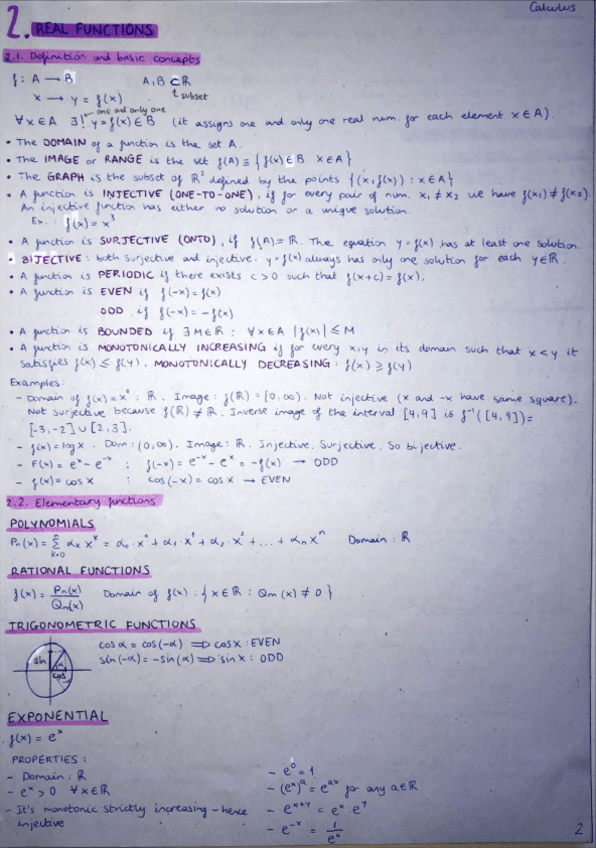 Calculus
2. REAL FUNCTIONS
2.1. Definition and basic concepts
f: A → B A, B ⊂ ℝ
↑ subset
x → y = f(x)
one and only one
∀x∈A ∃! y = f(x) ∈ B (it assigns one and only one real num. for each element x∈A).
• The DOMAIN of a function is the set A.
• The IMAGE or RANGE is the set f(A) ≡ {f(x) ∈ B x∈A}
• The GRAPH is the subset of ℝ² defined by the points {(x, f(x)) : x∈A}
• A function is INJECTIVE (ONE-TO-ONE), if for every pair of num. x₁ ≠ x₂ we have f(x₁) ≠ f(x₂).
An injective function has either no solution or a unique solution.
Ex.: f(x) = x³
• A function is SURJECTIVE (ONTO), if f(A) = ℝ. The equation y = f(x) has at least one solution.
• BIJECTIVE: both surjective and injective. y = f(x) always has only one solution for each y∈ℝ.
• A function is PERIODIC if there exists c > 0 such that f(x+c) = f(x).
• A function is EVEN if f(-x) = f(x)
ODD if f(-x) = -f(x)
• A function is BOUNDED if ∃ M∈ℝ : ∀x∈A |f(x)| ≤ M
• A function is MONOTONICALLY INCREASING if for every x, y in its domain such that x < y it
satisfies f(x) ≤ f(y). MONOTONICALLY DECREASING : f(x) ≥ f(y)
Examples:
- Domain of f(x) = x² : ℝ. Image: f(ℝ) = [0, ∞). Not injective (x and -x have same square).
Not surjective because f(ℝ) ≠ ℝ. Inverse image of the interval [4,9] is f⁻¹([4,9]) =
[-3,-2] ∪ [2,3].
- f(x) = log x. Dom: (0, ∞). Image: ℝ. Injective. Surjective. So bijective.
- F(x) = eˣ - e⁻ˣ : f(-x) = e⁻ˣ - eˣ = -f(x) → ODD
- f(x) = cos x : cos(-x) = cos x → EVEN
2.2. Elementary functions
POLYNOMIALS
Pn(x) = Σ αₖ xᵏ = α₀·x⁰ + α₁·x¹ + α₂·x² + ... + αₙxⁿ Domain: ℝ
RATIONAL FUNCTIONS
f(x) = Pn(x)/Qm(x) Domain of f(x) : {x∈ℝ : Qm(x) ≠ 0}
TRIGONOMETRIC FUNCTIONS
cos α = cos(-α) ⟹ cos x : EVEN
sin(-α) = -sin(α) ⟹ sin x : ODD
sin
α
cos
EXPONENTIAL
f(x) = eˣ
PROPERTIES:
- Domain: ℝ
- eˣ > 0 ∀x∈ℝ
- It's monotonic strictly increasing - hence
injective
- e⁰ = 1
- (eˣ)ᵃ = eᵃˣ for any a∈ℝ
- eˣ⁺ʸ = eˣ·eʸ
- e⁻ˣ = 1/eˣ
2